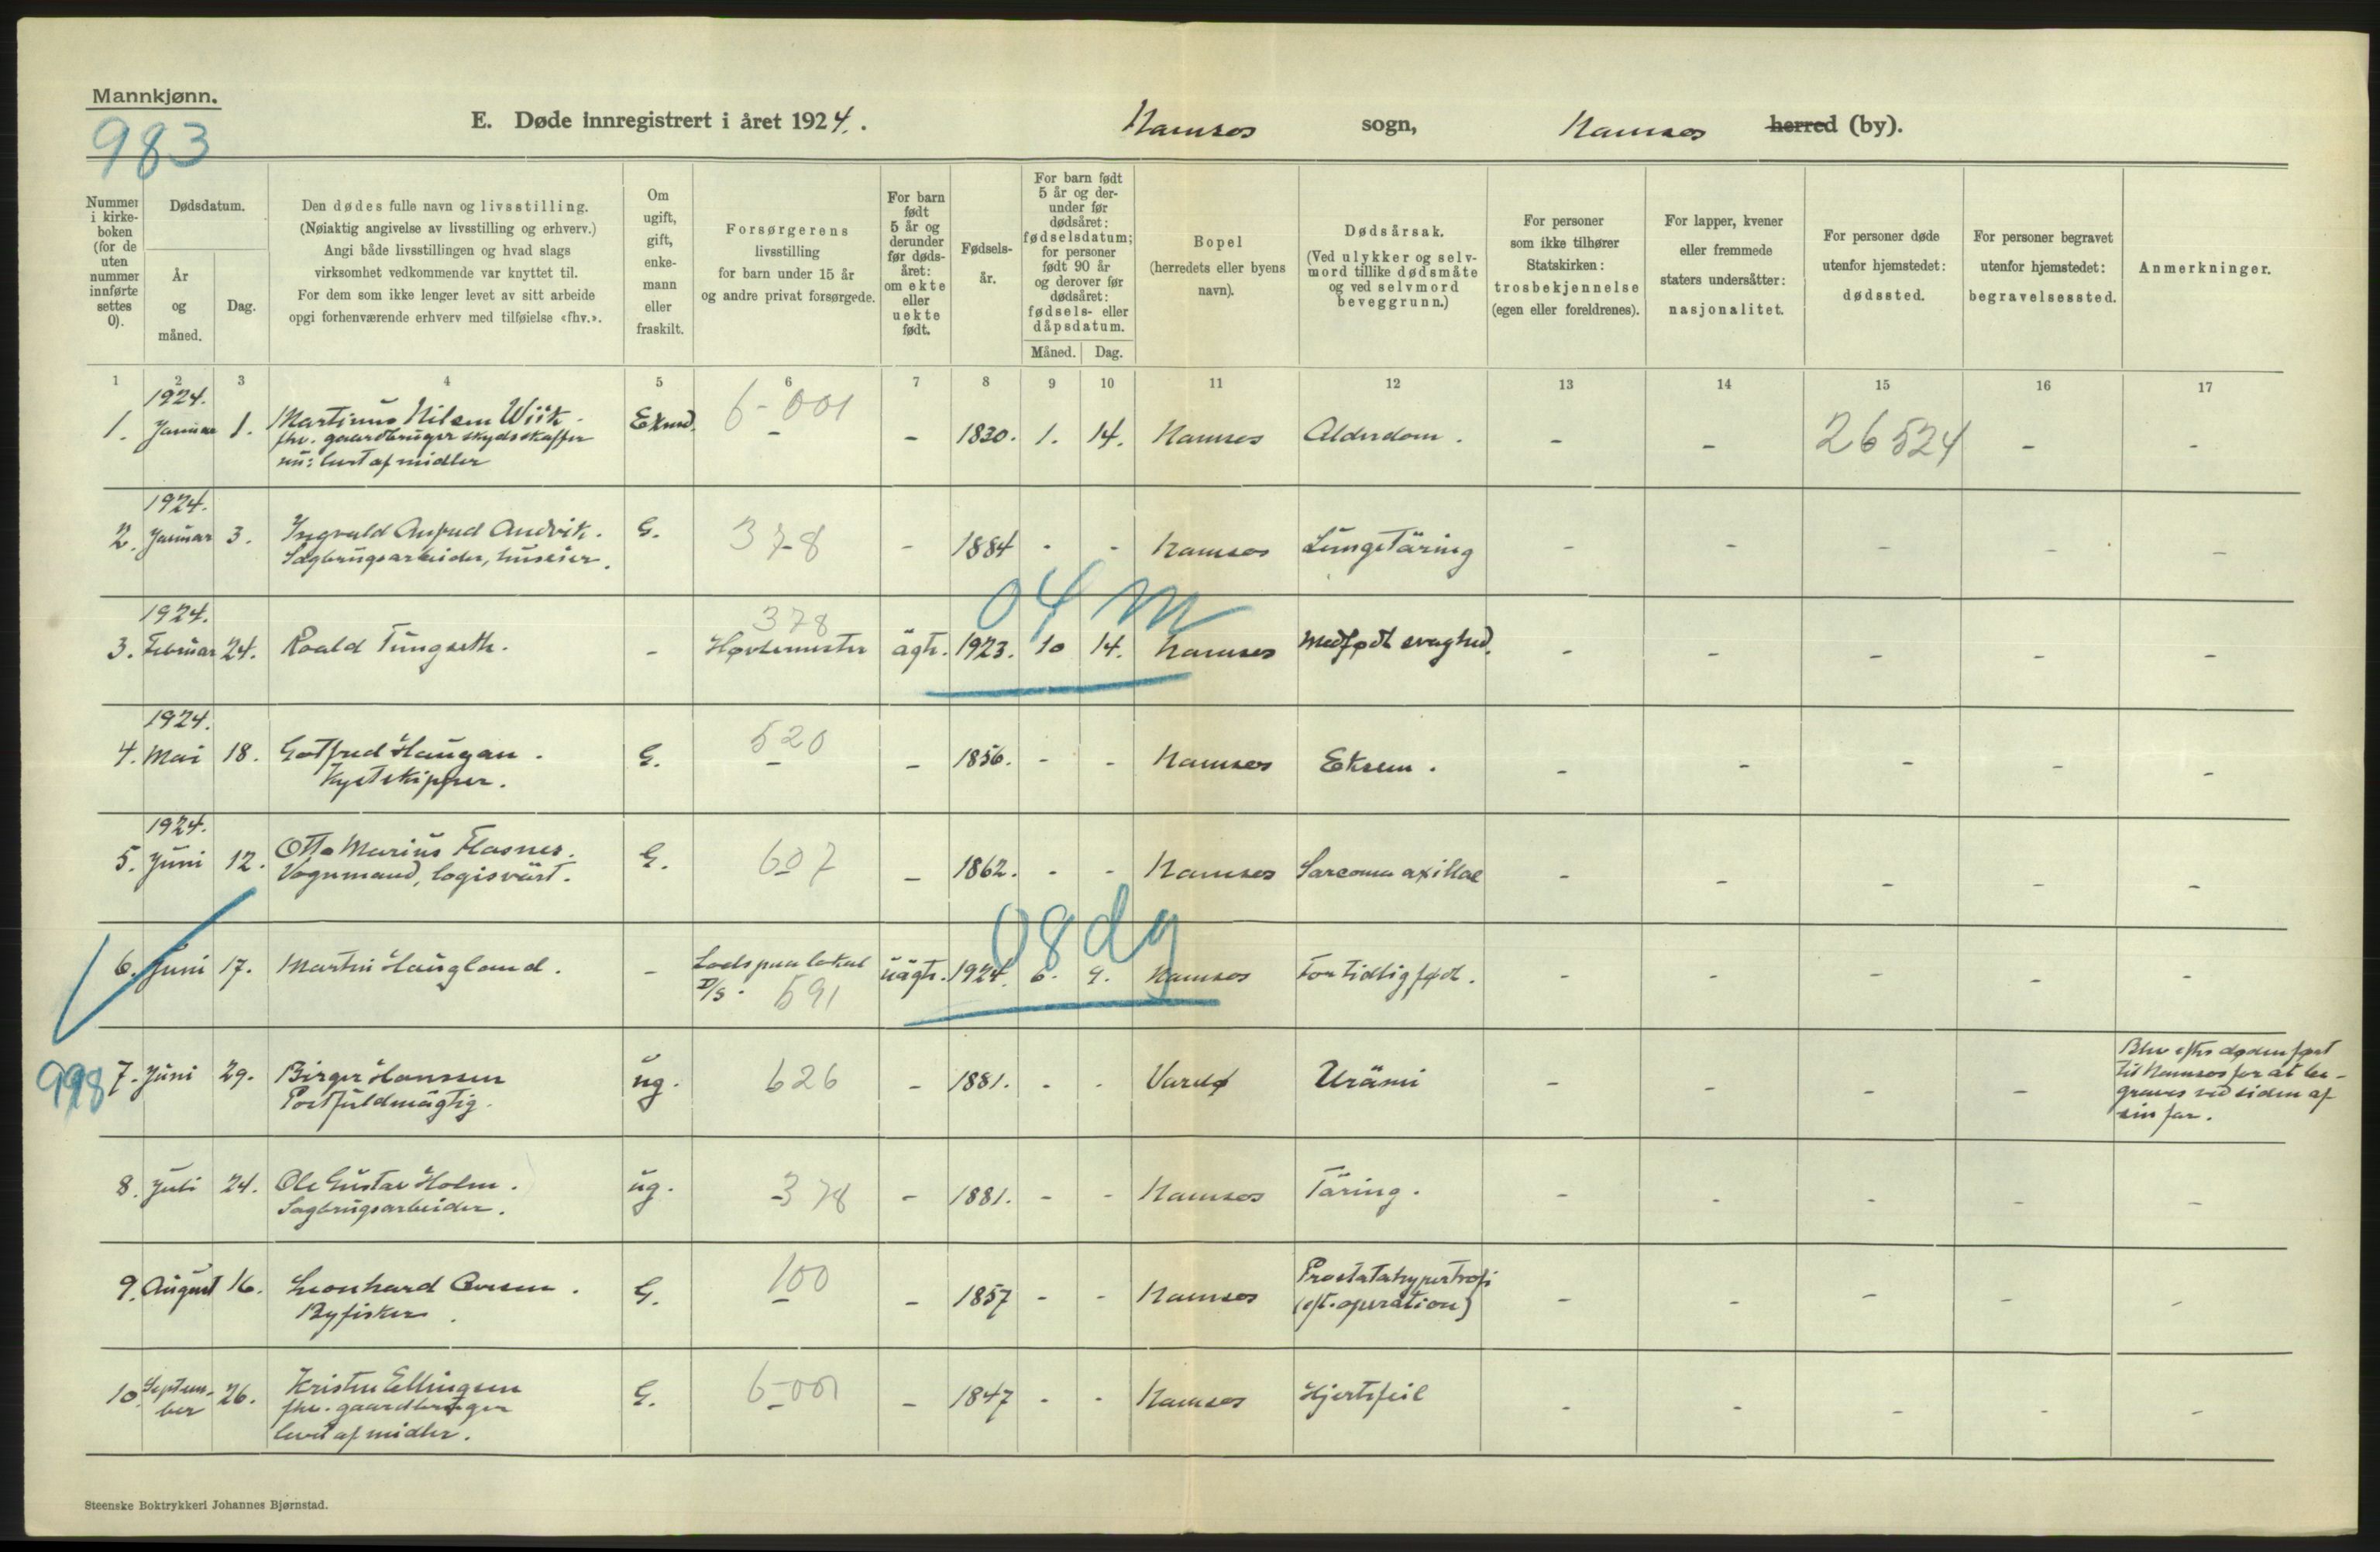 Mannkjønn.
983
E. Døde innregistrert i året 1924.
Namsos sogn,
Namsos herred (by).
Nummer i kirkeboken (for de uten nummer innførte settes 0).
Dødsdatum.
År og måned.
Dag.
Den dødes fulle navn og livsstilling.
(Nøiaktig angivelse av livsstilling og erhverv.)
Angi både livsstillingen og hvad slags
virksomhet vedkommende var knyttet til.
For dem som ikke lenger levet av sitt arbeide
opgi forhenværende erhverv med tilføielse «fhv.».
Om ugift, gift, enkemann eller fraskilt.
Forsørgerens
livsstilling
for barn under 15 år
og andre privat forsørgede.
For barn født 5 år og derunder før dødsåret: om ekte eller uekte født.
Fødselsår.
For barn født 5 år og derunder før dødsåret: fødselsdatum; for personer født 90 år og derover før dødsåret: fødsels- eller dåpsdatum.
Måned. Dag.
Bopel
(herredets eller byens navn).
Dødsårsak.
(Ved ulykker og selvmord tillike dødsmåte og ved selvmord beveggrunn.)
For personer som ikke tilhører Statskirken: trosbekjennelse (egen eller foreldrenes).
For lapper, kvener eller fremmede staters undersåtter: nasjonalitet.
For personer døde utenfor hjemstedet: dødssted.
For personer begravet utenfor hjemstedet: begravelsessted.
Anmerkninger.
1 2 3 4 5 6 7 8 9 10 11 12 13 14 15 16 17
1924.
1. Januar 1. Martinus Nilsen Wiik. Ekmd. 6-001 - 1830. 1. 14. Namsos Alderdom. - - 26524 - -
fhv. gaardbruger skydsskaffer
nu: levet af midler
1924.
2. Januar 3. Ingvald Anfred Andvik. G. 378 - 1884 - - Namsos Lungetäring - - - - -
Sagbrugsarbeider, huseier.
04 m
1924. 378
3. Februar 24. Roald Tungseth. - Høvlemester ägte. 1923. 10 14. Namsos Medfødt svaghed. - - - - -
1924.
4. Mai 18. Gotfred Haugan. G. 520 - 1856. - - Namsos Eksem. - - - - -
Kystskipper.
1924.
5. Juni 12. Otto Marius Flasnes. G. 607 - 1862. - - Namsos Sarcoma axillae - - - - -
Vognmand, logisvärt.
08 dg
6. Juni 17. Martin Haugland. - Lods paa lokal uägte. 1924. 6. 9. Namsos For tidlig født. - - - - -
D/S. 591
998 7. Juni 29. Birger Hanssen ug. 626 - 1881. - - Vardø Urämi - - - -
Postfuldmägtig.
Blev efter døden ført
til Namsos for at be-
graves ved siden af
sin far.
8. Juli 24. Ole Gustav Holm. ug. 378 - 1881. - - Namsos Täring. - - - - -
Sagbrugsarbeider.
9. August 16. Leonhard Ovesen. G. 100 - 1857 - - Namsos Prostatahypertrofi - - - - -
Byfisker. (eft. operation)
10. Septem- 26. Kristen Ellingsen G. 6-001 - 1847 - - Namsos Hjertefeil - - - - -
ber fhv. gaardbruger
levet af midler.
Steenske Boktrykkeri Johannes Bjørnstad.